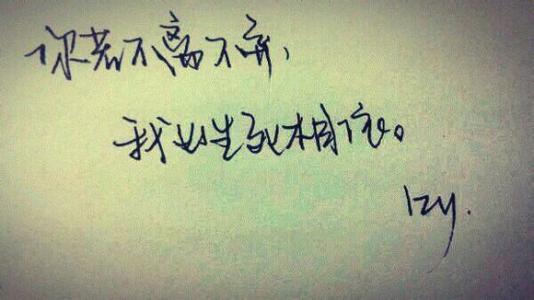 你若不离不弃,
我必生死相依。
lzy.